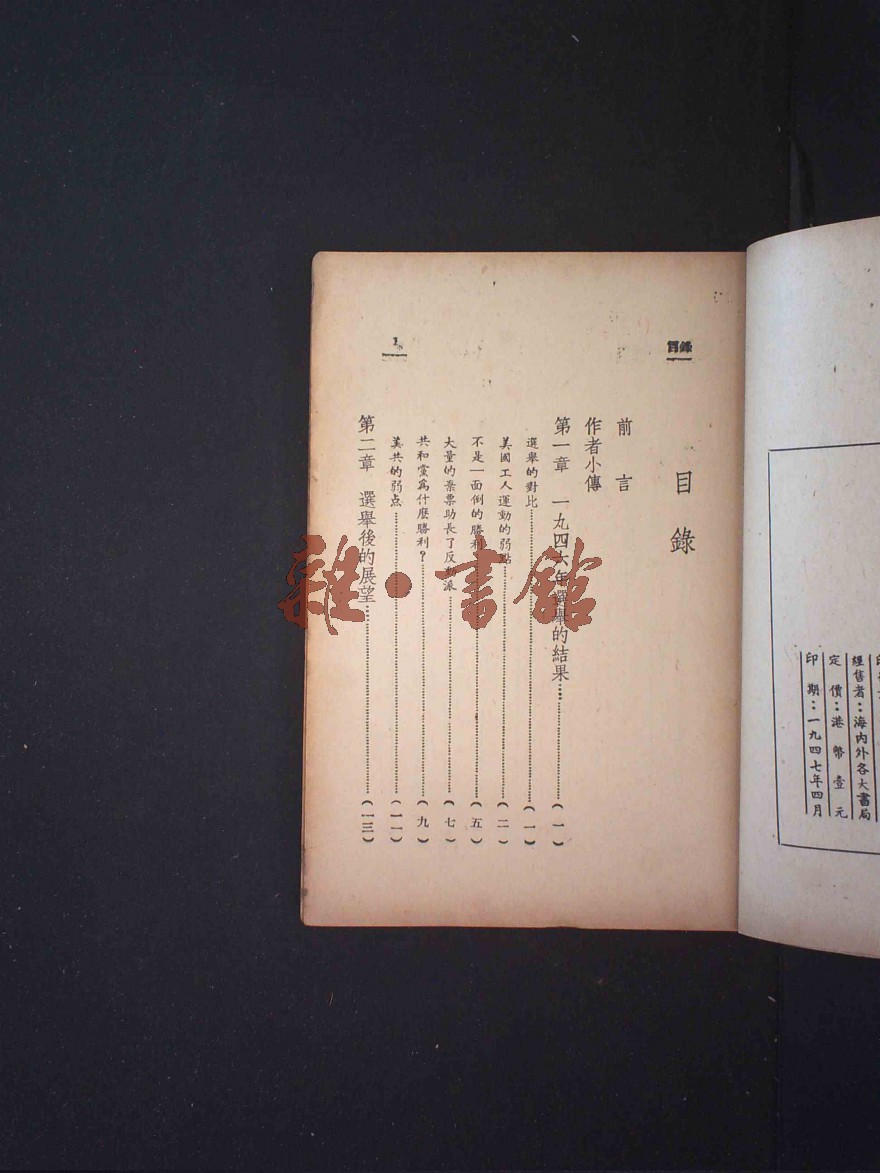 經售者：海內外各大書局
定價：港幣壹元
印期：一九四七年四月
目錄
1
目錄
前言
作者小傳
第一章 一九四六年選舉的結果……（一）
選舉的對比……（一）
美國工人運動的弱點……（二）
不是一面倒的勝利……（五）
大量的棄票助長了反動派……（七）
共和黨為什麽勝利？……（九）
美共的弱点……（一一）
第二章 選舉後的展望……（一三）
雜·書館